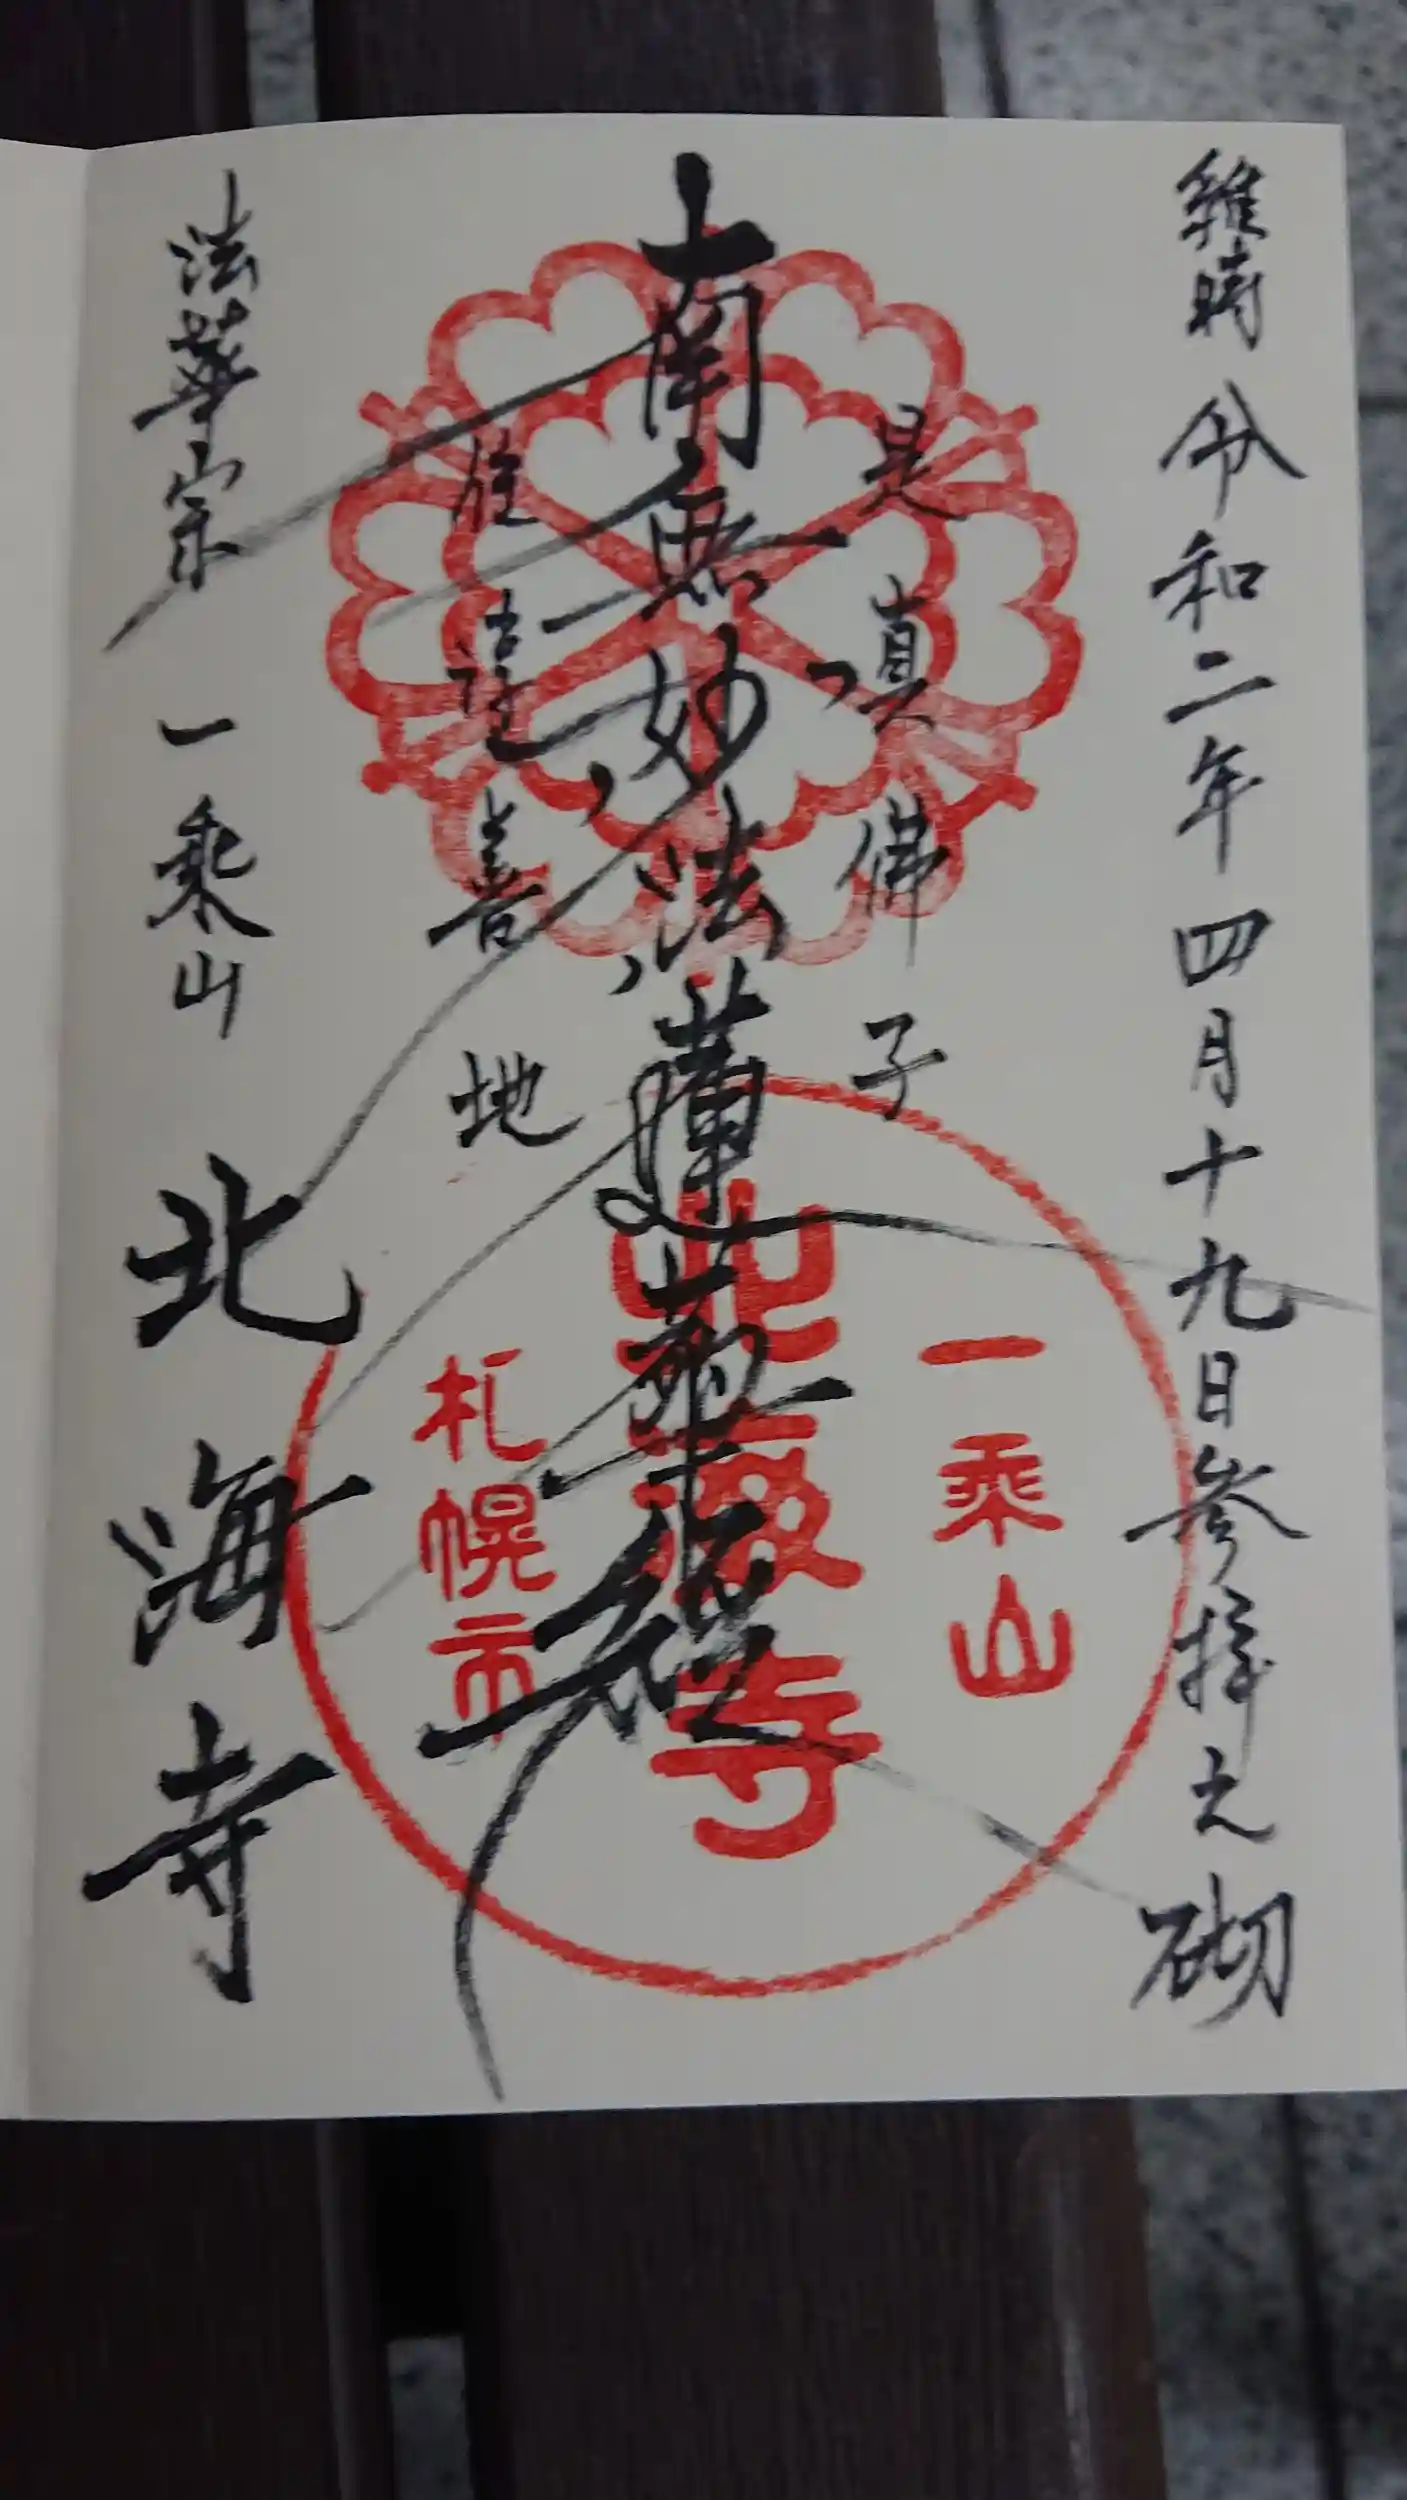 維時 令和二年四月十九日参拝之砌
是真佛子
南無妙法蓮華経
住淳善地
法華宗 一乗山 北海寺
一乗山
北海寺
札幌市